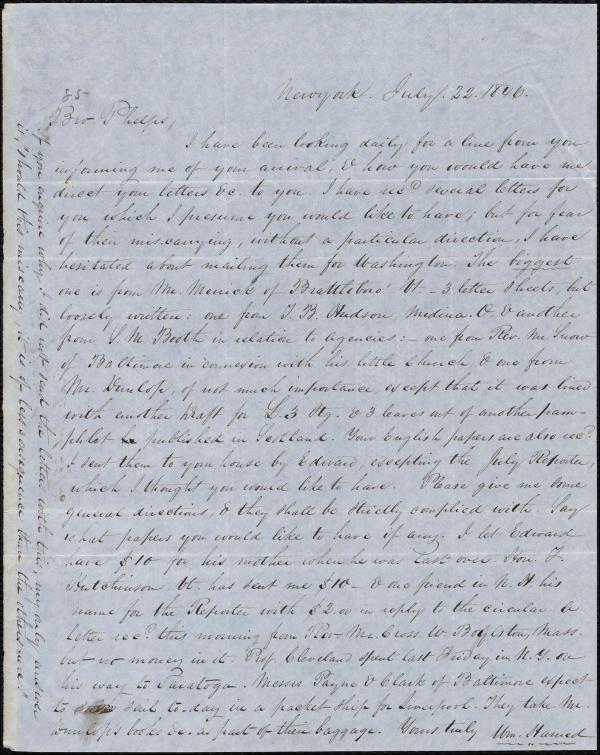 Newyork. July. 22. 1846.
85
Bro Phelps,
I have been looking daily for a line from you
informing me of your arrival, & how you would have me
direct your letters &c. to you. I have recd several letters for
you which I presume you would like to have; but for fear
of their miscarrying, without a particular direction, I have
hesitated about mailing them for Washington. The biggest
one is from Mr. Merrick of Brattleboro' Vt. - 3 letter sheets, but
loosely written: one from T. B. Hudson, Medina. O. & another
from S. M. Booth in relation to agencies: - one from Rev. Mr. Snow
of Baltimore in connexion with his little church, & one from
Mr. Dunlop, of not much importance except that it was lined
with another draft for £.3 Stg. & 3 leaves out of another pam-
phlet published in Scotland. Your English papers are also recd.
I sent them to your house by Edward, excepting the July Reporter,
which I thought you would like to have. Please give me some
general directions, & they shall be strictly complied with. Say
what papers you would like to have if any. I let Edward
have $10 for his mother when he was last over. Hon. T.
Hutchinson Vt. has sent me $10 - & one friend in N. H his
name for the Reporter with $2.00 in reply to the circular. A
letter recd. this morning from Rev- Mr. Cross. W. Boylston, Mass.
but no money in it. Prof. Cleveland spent last Friday in N. Y. on
his way to Saratoga. Messrs. Payne & Clark of Baltimore expect
to sail to-day in a packet ship for Liverpool. They take Mr.
Dunlop's books &c. as part of their baggage. Yours truly Wm. Harned
If you inquire why I did not send the letters with this, my only answer
is, "Should this miscarry, it is of less consequence than the others were."